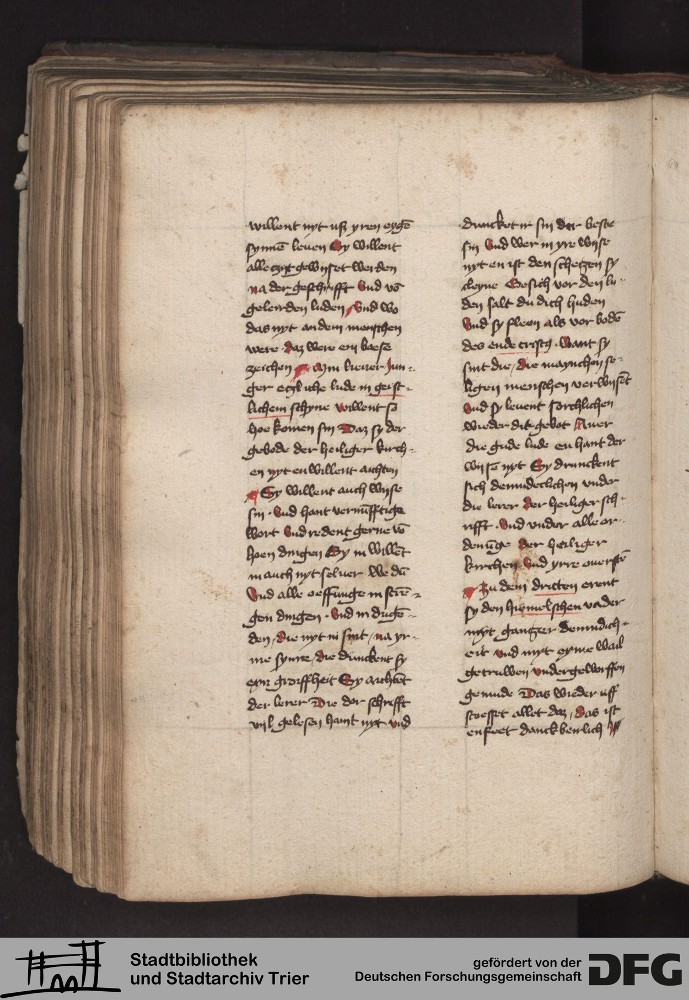 willent nyt uß yren eygē
synnē leuen Sy willent
alleczyt gewyset werden
na der geschrifft Vnd vō
gelerden luden Vnd wo
das nyt an dem menschen
were daz were ein boese
zeichen Myn lieuer Jun
ger etzliche lude in geist
lichem schyne willent so
hoe komen sin Daz sy der
gebode der heiliger kirch
en nyt en willent achten
Sy willent auch wyse
sin Vnd hant vernufftige
wort Vnd redent gerne vō
hoen dingen Sy in willēt
in auch nyt seluer we dū
Vnd alle oeffunge in strē
gen dingen Vnd in duge
den die nyt in sint na yr
me synne die dunckent sy
eyn groffheit Sy achtet
der lerer Die der schrifft
vil gelesen haint nyt vnd
duncket ir sin der beste
sin Vnd wer in yre wyse
nyt en ist den schetzen sy
cleyne Gesich vor den lu
den salt du dich huden
Vnd sy fleen als vor bodē
des ende crists Want sy
sint die die maynchen se
ligen menschen verwysēt
Vnd sy leuent sorchlichen
wieder dit gebot Auer
die gude lude en hant der
wyse nyt Sy drunckent
sich demudeclichen vnder
die lerer der heiliger sch
rifft Vnd vnder alle or
denūge der heiliger
kirchen Vnd yrre ouerstē
Zu dem dritten erent
sy den hymelschen vader
myt gantzer demudich
eit vnd myt eyme wail
getruwen vndergeworffen
gemude Das wieder uff
stoesset allet daz das ist
en feet danckberlich
Stadtbibliothek
und Stadtarchiv Trier
gefördert von der
Deutschen Forschungsgemeinschaft
DFG